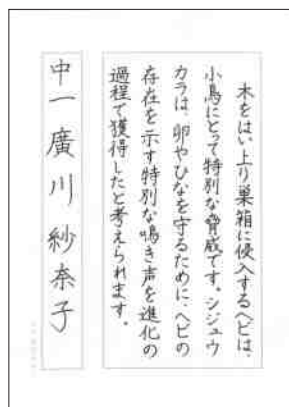 木をはい上り巣箱に侵入するヘビは、
小鳥にとって特別な脅威です。シジュウ
カラは、卵やひなを守るために、ヘビの
存在を示す特別な鳴き声を進化の
過程で獲得したと考えられます。
中一廣川紗奈子